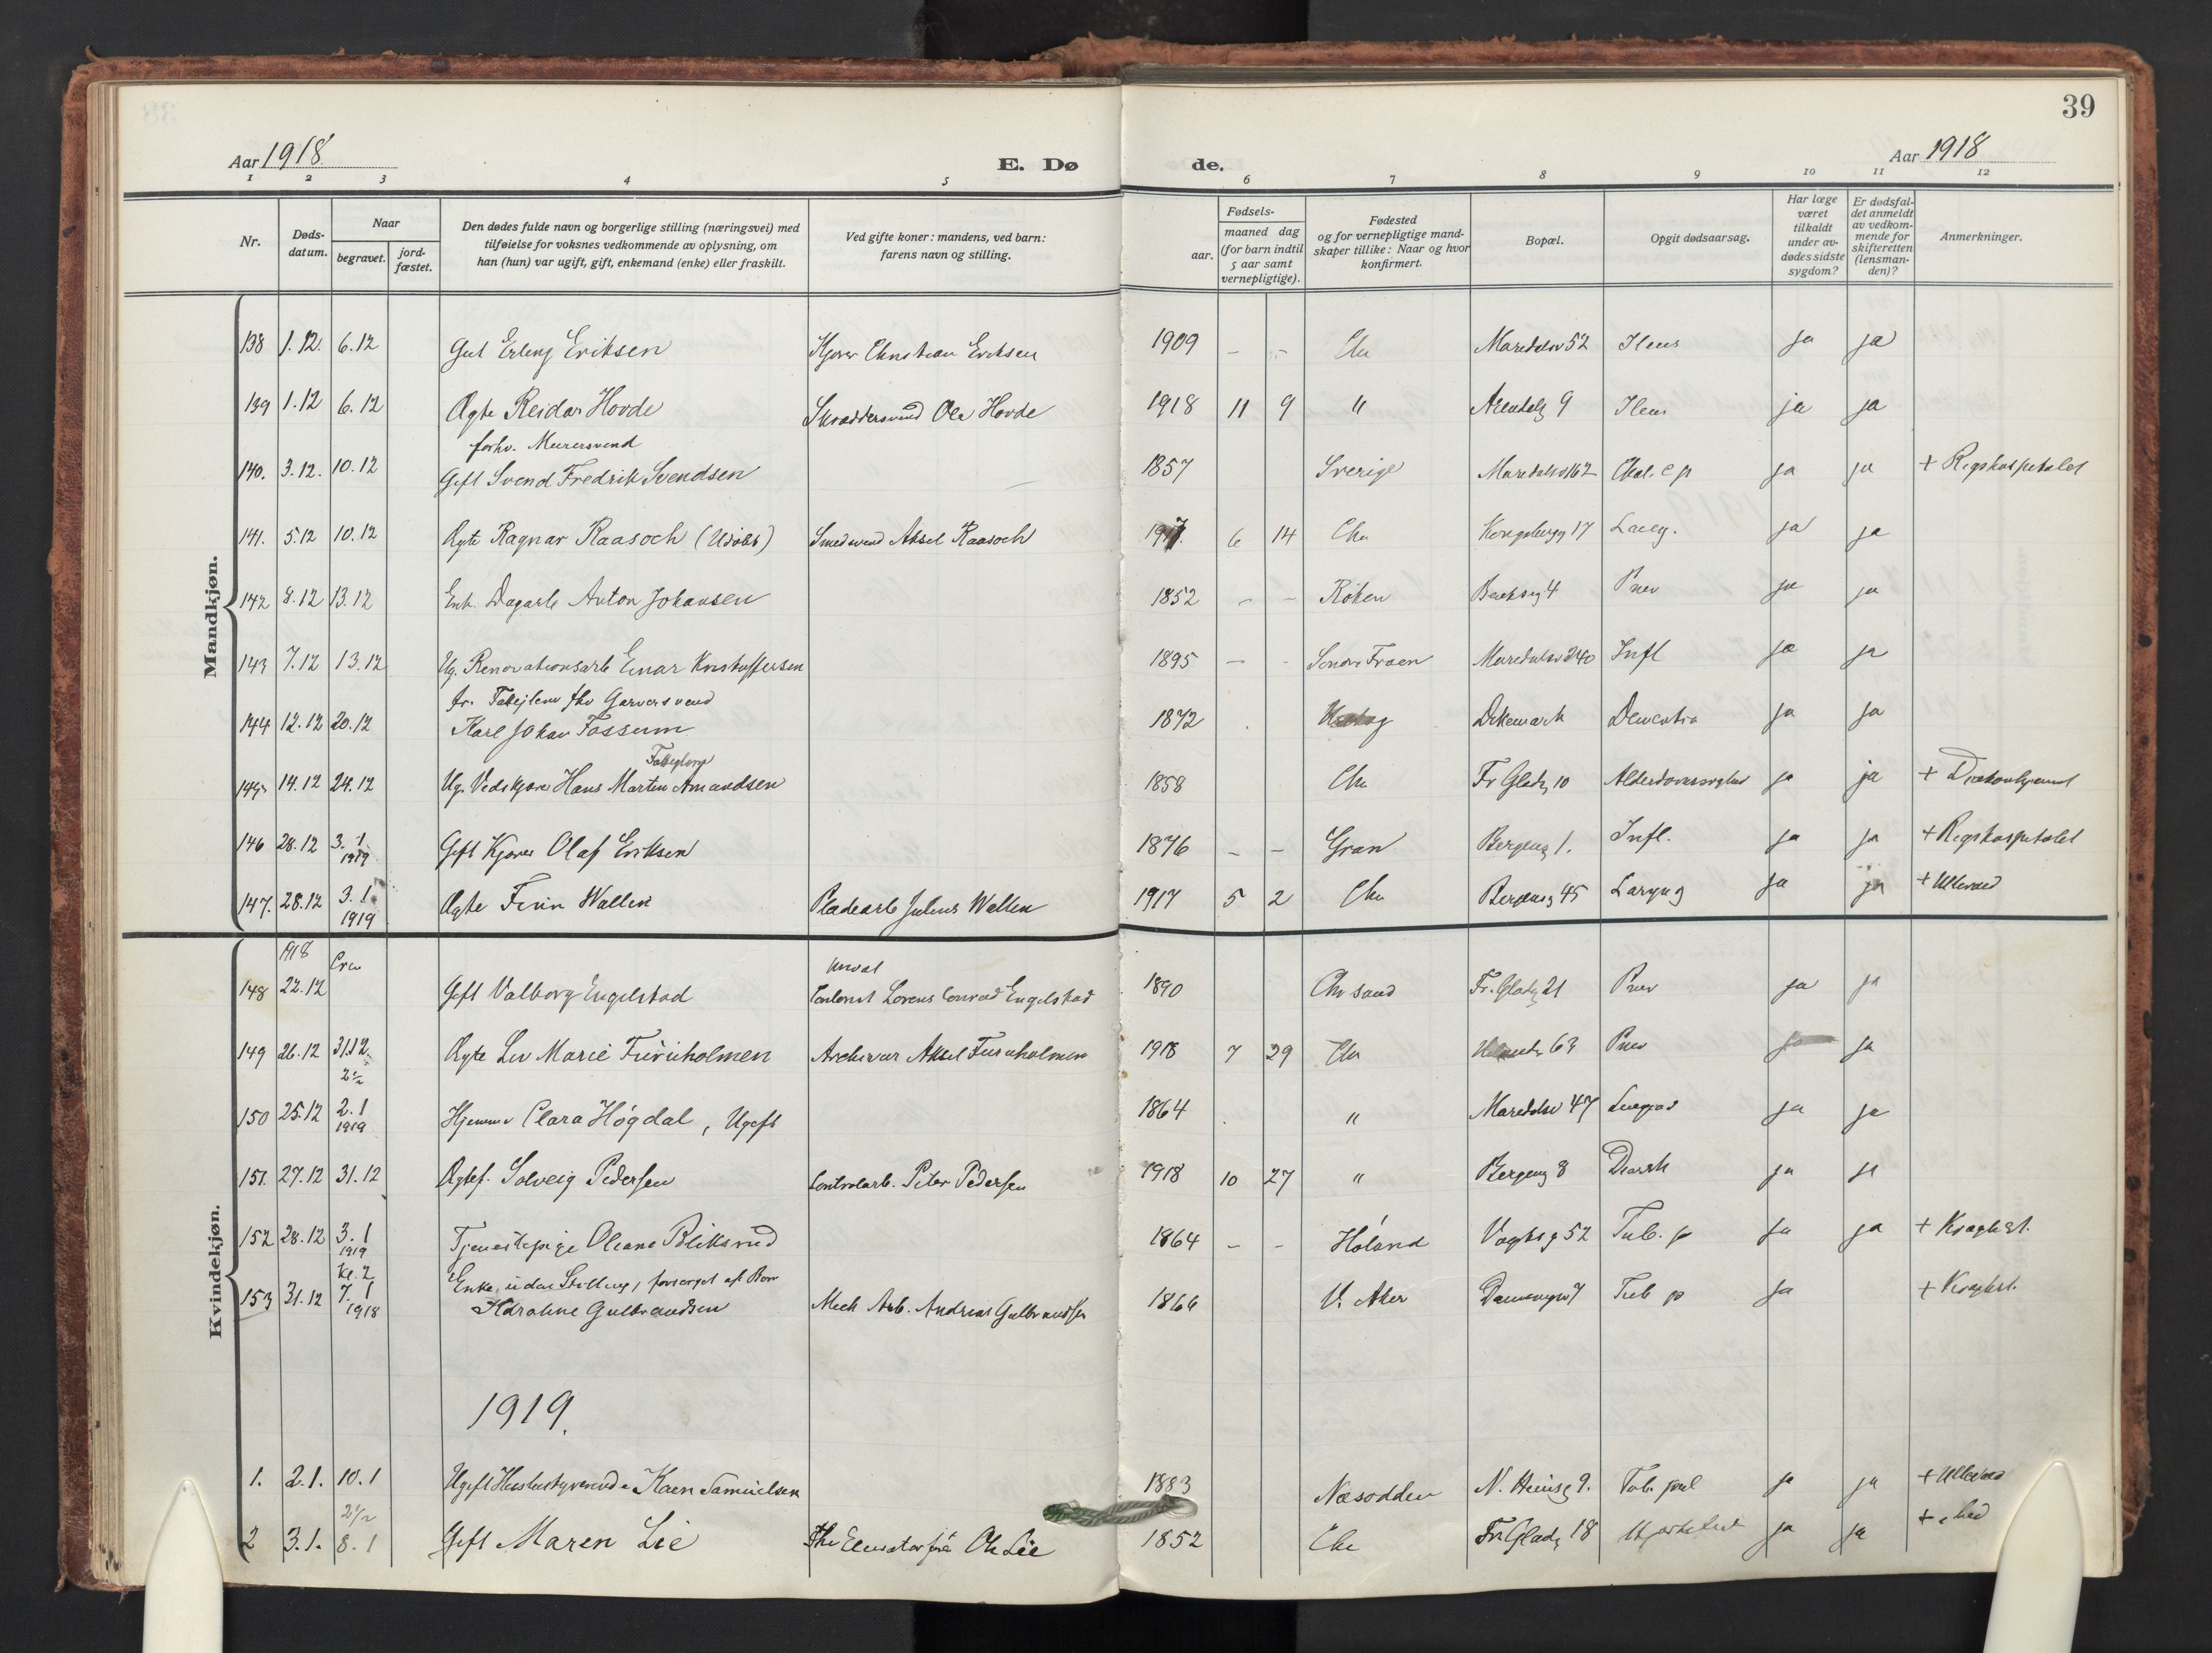 39
Aar 1918
E. Dø
de.
Aar 1918
1 2 3 4 5 6 7 8 9 10 11 12
Nr.
Døds-
datum.
Naar
begravet.
jord-
fæstet.
Den dødes fulde navn og borgerlige stilling (næringsvei) med
tilføielse for voksnes vedkommende av oplysning, om
han (hun) var ugift, gift, enkemand (enke) eller fraskilt.
Ved gifte koner: mandens, ved barn:
farens navn og stilling.
Fødsels-
aar.
maaned dag
(for barn indtil
5 aar samt
vernepligtige).
Fødested
og for vernepligtige mand-
skaper tillike: Naar og hvor
konfirmert.
Bopæl.
Opgit dødsaarsag.
Har læge
været
tilkaldt
under av-
dødes sidste
sygdom?
Er dødsfal-
det anmeldt
av vedkom-
mende for
skifteretten
(lensman-
den)?
Anmerkninger.
Mandkjøn.
138 1.12. 6.12 Gut Erling Eriksen Kjører Christian Eriksen 1909 – – Chr Maridalsv 52 ja ja
139 1.12 6.12 Ægte Reidar Hovde Skræddersvend Ole Hovde 1918 11 9 " Arendalsg 9 ja ja
forhv. Murersvend
140. 3.12. 10.12 Gift Svend Fredrik Svendsen 1857 Sverige Maridalsv 162 ja ja + Rigshospitalet
141. 5.12 10.12 Ægte Ragnar Raasoch (Udøbt) Smedsvend Aksel Raasoch 1917. 6 14 Chr Kongsbergg 17 Laryg. ja ja
142 8.12 13.12 Enk. Dagarb Anton Johansen 1852 – – Röken 4 Pnev ja ja
143 7.12 13.12 Ug. Renovationsarb Einar Kristoffersen 1895 – – Søndre Fraen Maridalsv 240 Infl ja ja
fr. Fattiglem fhv Garversvend
144 12.12 20.12 Karl Johan Fossum 1872 Dikemark Dementia ja ja
Fattiglem
145 14.12 24.12 Ug. Vedskjærer Hans Martin Amandsen 1858 Chr Fr Gladsg 10 ja ja + Diakonhjemmet
146 28.12 3.1 1919 Gift Kjører Olaf Eriksen 1876 – – Gran Bergensg 1. Infl. ja ja + Rigshospitalet
147. 28.12 3.1. 1919 Ægte Finn Wallin Pladearb Julius Wallin 1917 5 2 Chr Bergensg 45 Laryng ja ja + Ullevaal
Kvindekjøn.
1918 Crem
148 22.12 Gift Valborg Engelstad Lorens Conrad Engelstad 1890 Chr sand Fr. Gladsg 21 Pnev ja ja
149 26.12 31.12. Ægte Liv Marie Furuholmen Arkivar Aksel Furuholmen 1918 7 29 Chr 63 Pnev ja ja
2 ½
150 25.12 2.1 1919 Hjemme Clara Högdal, Ugift 1864 " Maridalsv 47 ja ja
151. 27.12 31.12 Ægtef. Solveig Pedersen Controlarb. Peter Pedersen 1918 10 27 " Bergensg 8 Diarrh ja ja
152 28.12 3.1 1919 Tjenestepige Oleane Bliksrud 1864 – – Høland Vogtsg 52 Tub. p ja ja + Kroghst.
Kl. 2 Enke, uden Stilling, forsørget af Børn
153 31.12 7.1 1918 Karoline Gulbrandsen Mek Arb. Andreas Gulbrandsen 1866 V. Aker 7 Tub p ja + Kroghst.
1919.
1. 2.1. 10.1 Ugift Husbestyrerinde Karen Samuelsen 1883 Næsodden 9. Tub. pul ja ja + Ullevaal
2 ½
2 3.1. 8.1 Gift Maren Lie Ole Lie 1852 Chr Fr. Gladsg 18 Hjertefeil ja ja +